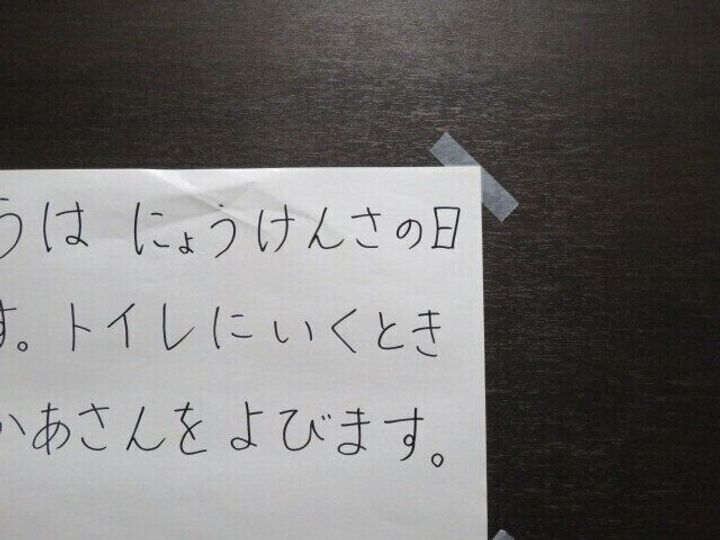 うは にょうけんさの日
す。トイレにいくとき
かあさんをよびます。